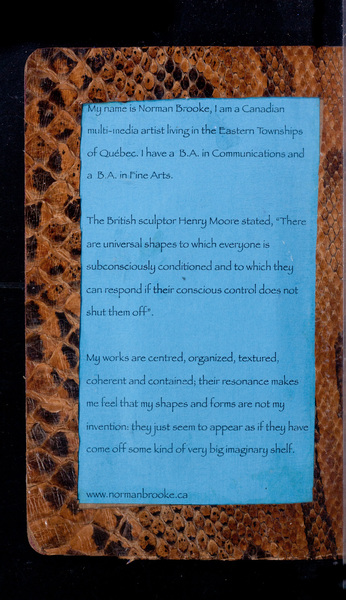 My name is Norman Brooke, I am a Canadian
multi-media artist living in the Eastern Townships
of Québec. I have a B.A. in Communications and
a B.A. in Fine Arts.
The British sculptor Henry Moore stated, "There
are universal shapes to which everyone is
subconsciously conditioned and to which they
can respond if their conscious control does not
shut them off".
My works are centred, organized, textured,
coherent and contained; their resonance makes
me feel that my shapes and forms are not my
invention: they just seem to appear as if they have
come off some kind of very big imaginary shelf.
www.normanbrooke.ca